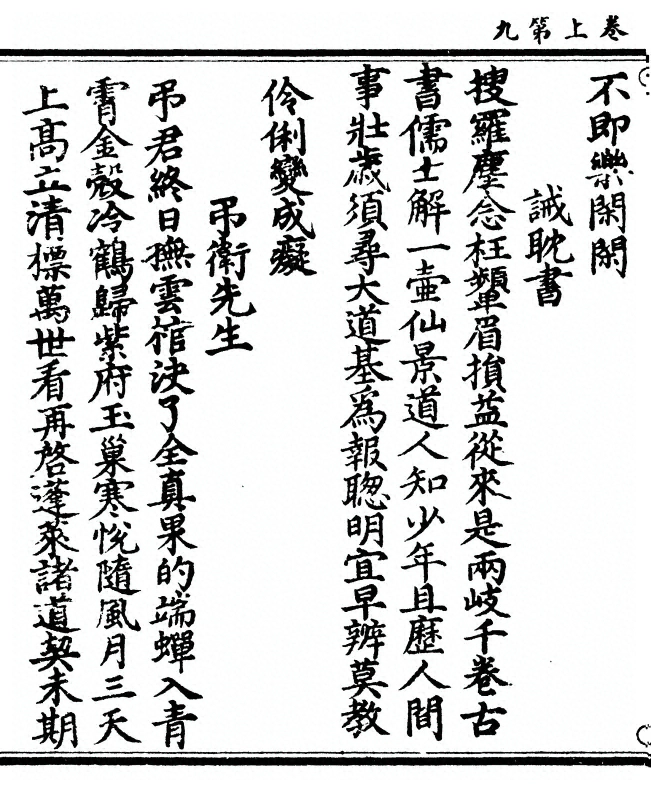 卷上第九
不即樂閑閑
誡耽書
搜羅塵念枉顰眉損益從來是兩岐千卷古
書儒士解一壺仙景道人知少年且歷人間
事壯歲須尋大道基為報聰明宜早辨莫教
伶俐變成癡
弔衛先生
弔君終日撫雲棺決了全真果的端蟬入青
霄金殼冷鶴歸紫府玉巢寒悅隨風月三天
上高立清標萬世看再啓蓬萊諸道契未期